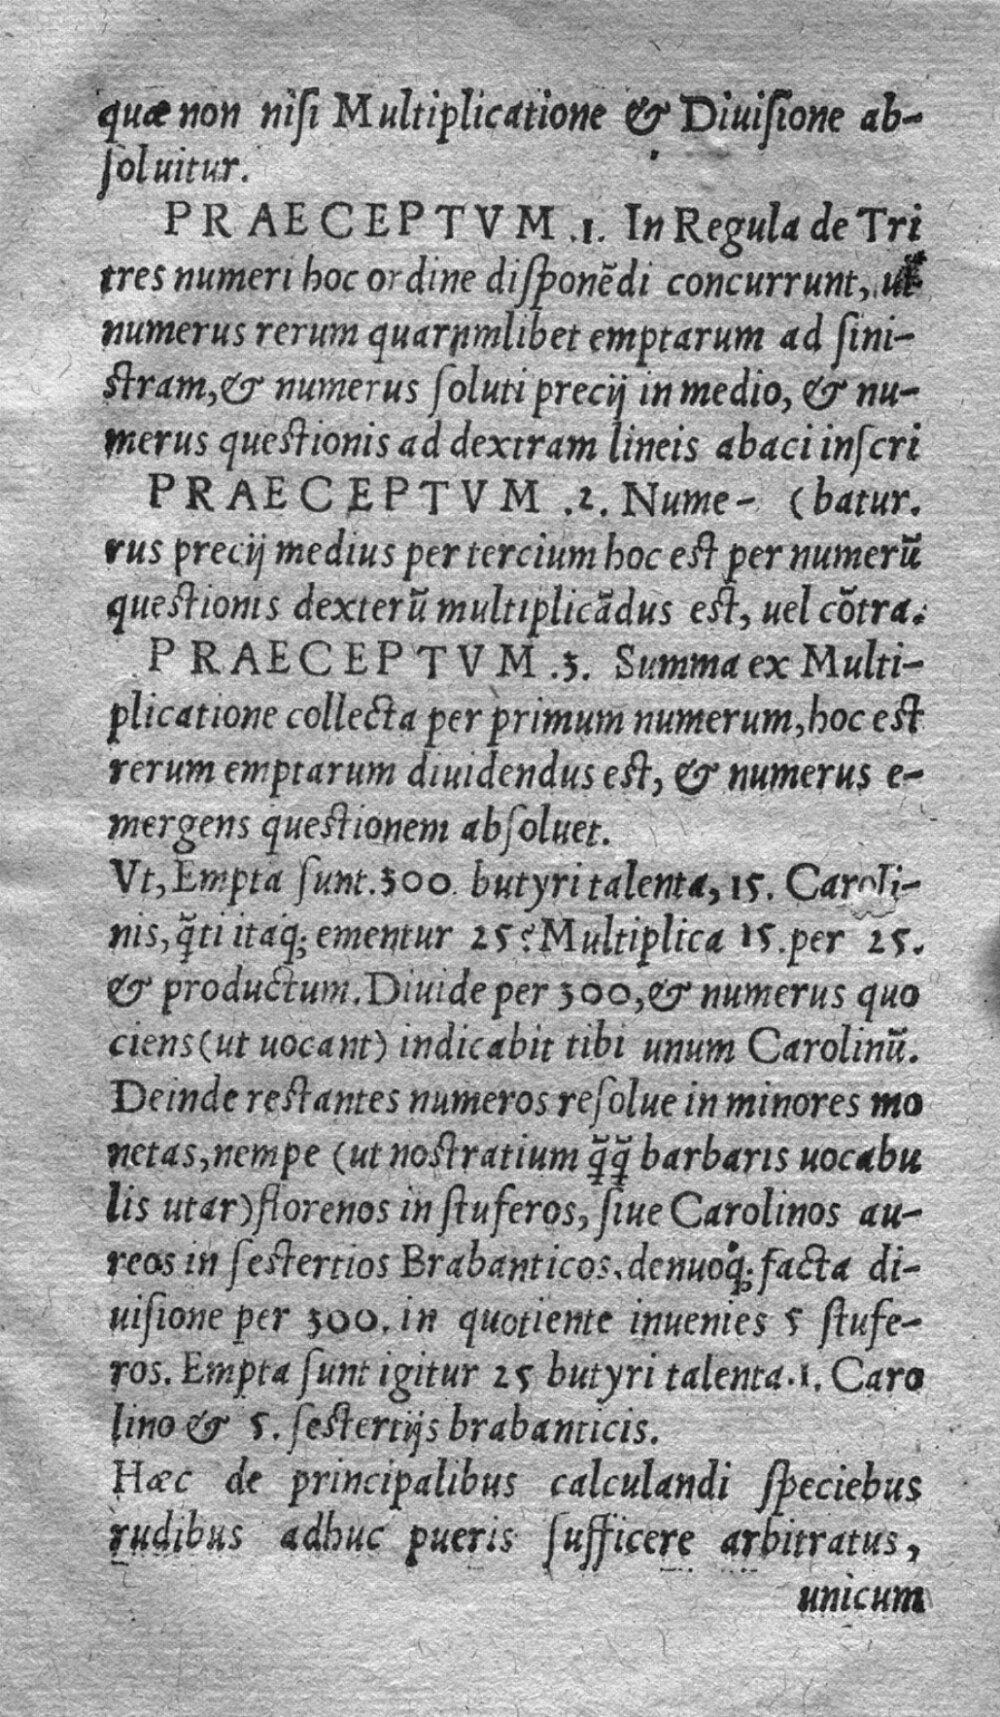 quæ non niſi Multiplicatione & Diuiſione ab-
ſoluitur.
PRAECEPTVM .1. In Regula de Tri
tres numeri hoc ordine diſponẽdi concurrunt, ut
numerus rerum quarumlibet emptarum ad ſini-
ſtram, & numerus ſoluti precij in medio, & nu-
merus queſtionis ad dextram lineis abaci inſcri
PRAECEPTVM .2. Nume- (batur.
rus precij medius per tercium hoc eſt per numerũ
queſtionis dexterũ multiplicãdus eſt, uel cõtra.
PRAECEPTVM .3. Summa ex Multi-
plicatione collecta per primum numerum, hoc eſt
rerum emptarum diuidendus eſt, & numerus e-
mergens queſtionem abſoluet.
Vt, Empta ſunt.300. butyri talenta, 15. Caroli-
nis, q̃ti itaq; ementur 25? Multiplica 15.per 25.
& productum. Diuide per 300, & numerus quo
ciens (ut uocant) indicabit tibi unum Carolinũ.
Deinde reſtantes numeros reſolue in minores mo
netas, nempe (ut noſtratium q̃q̃ barbaris uocabu
lis utar) florenos in ſtuferos, ſiue Carolinos au-
reos in ſeſtertios Brabanticos, denuoq; facta di-
uiſione per 300. in quotiente inuenies 5 ſtufe-
ros. Empta ſunt igitur 25 butyri talenta.1. Caro
lino & 5. ſeſtertijs brabanticis.
Hæc de principalibus calculandi ſpeciebus
rudibus adhuc pueris ſufficere arbitratus,
unicum